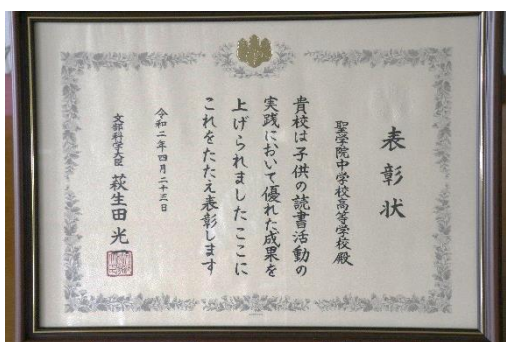 表彰状
聖学院中学校高等学校殿
貴校は子供の読書活動の
実践において優れた成果を
上げられましたここに
これをたたえ表彰します
令和二年四月二十三日
文部科学大臣 萩生田光一